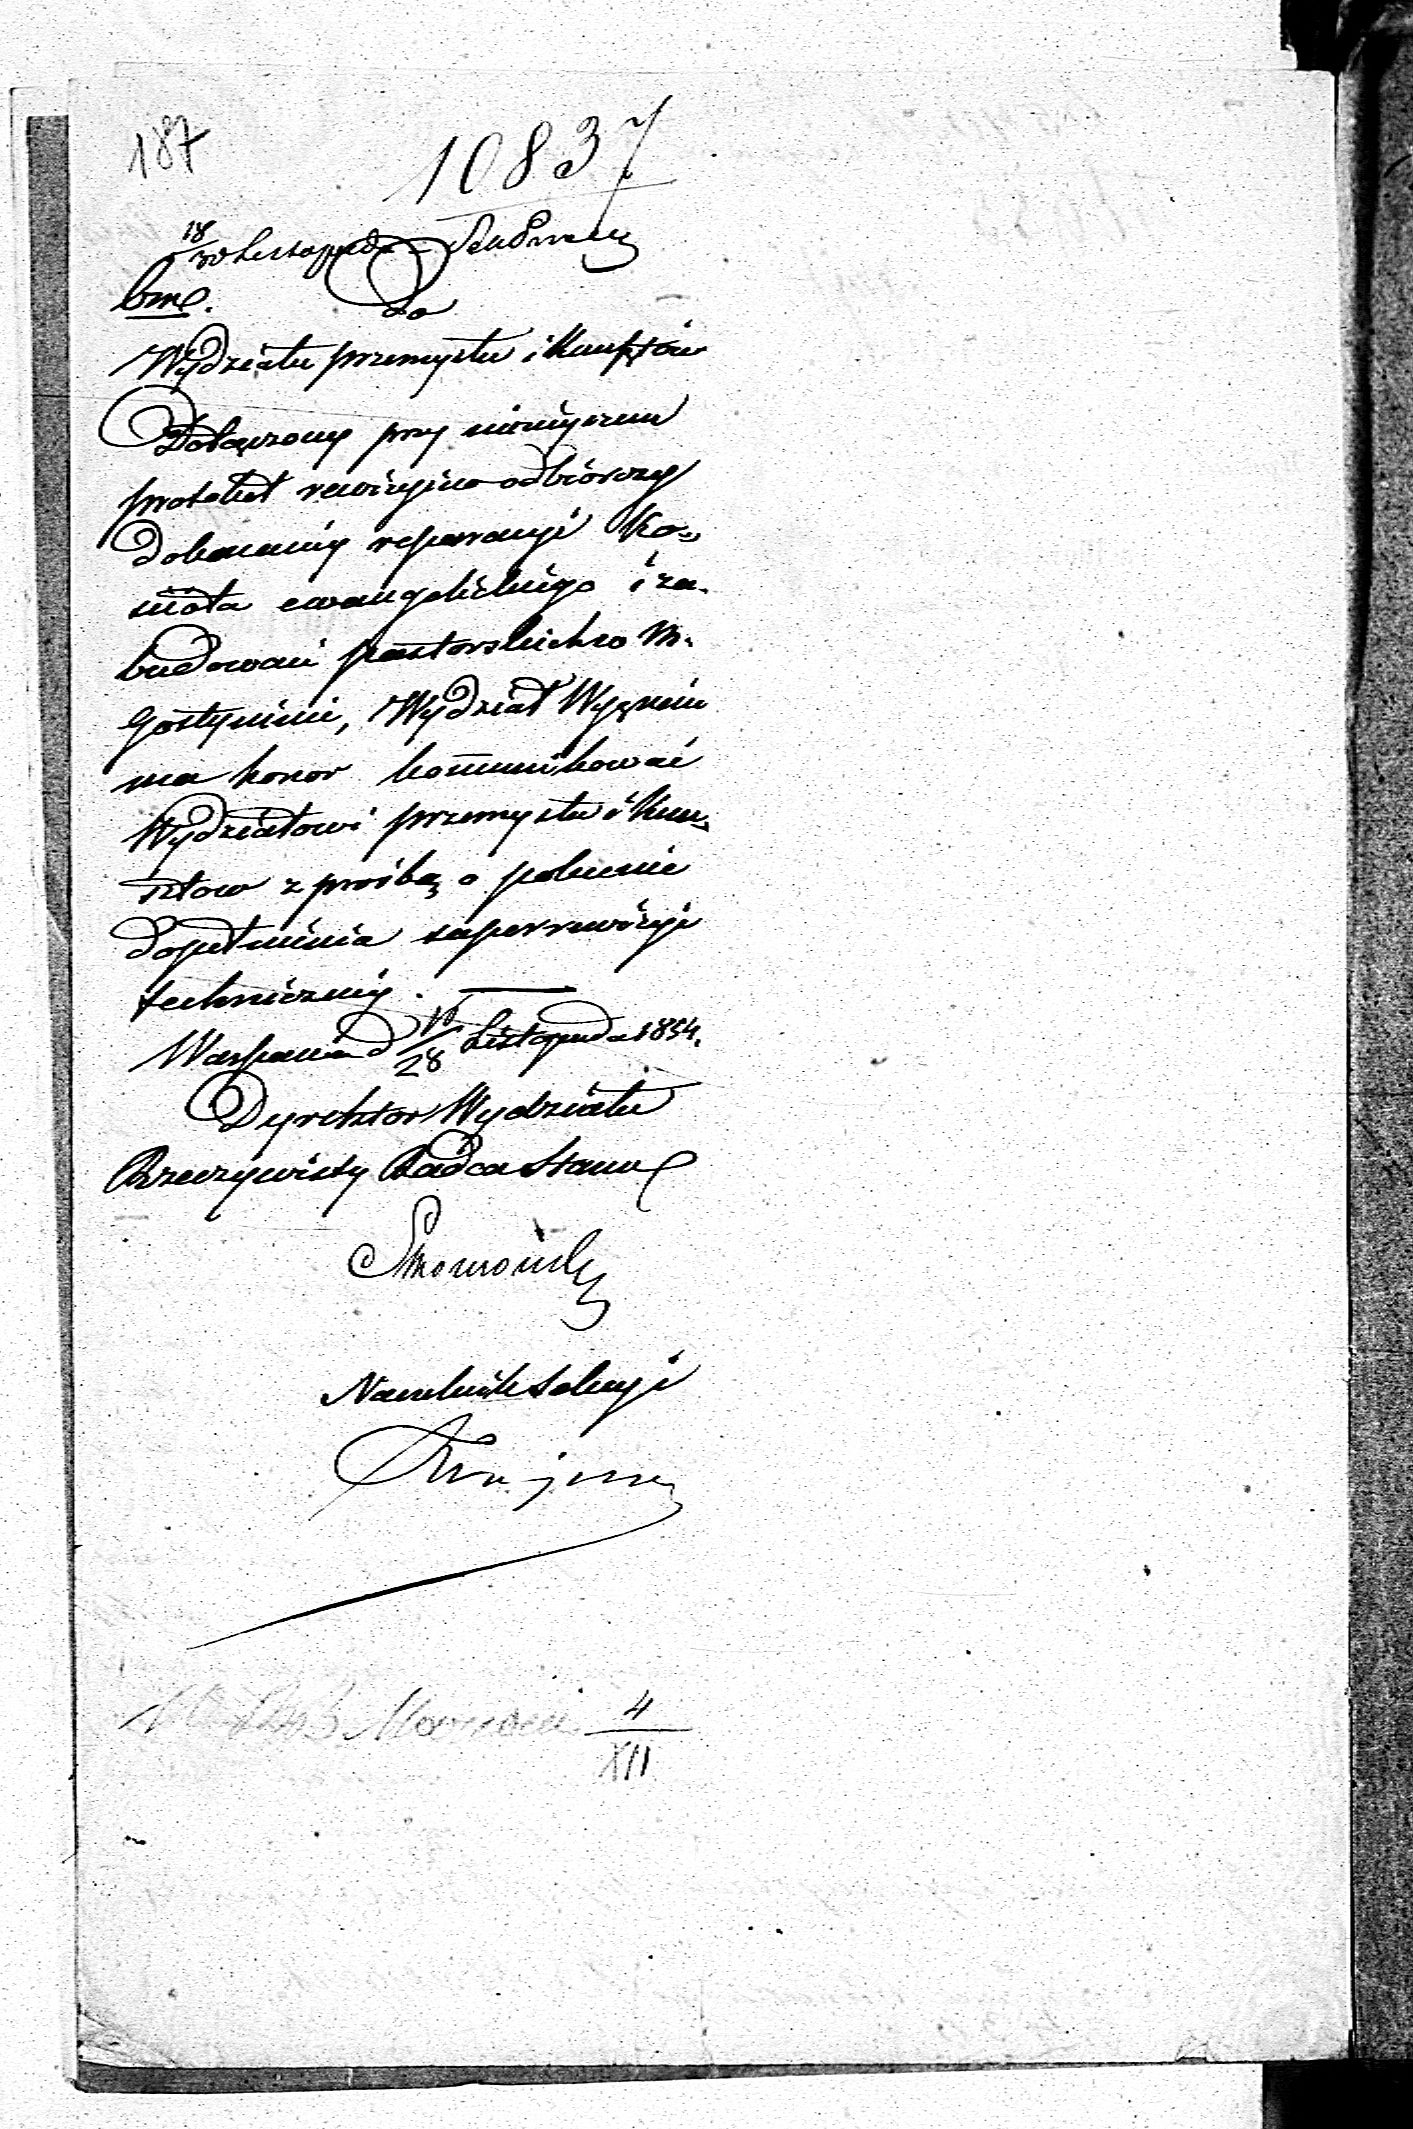 187
10837
18/30 Listopada
Do
Wydziału przemysłu i Kunsztów
Dołączony przy niniejszem
protokół rewizyjno odbiorczy
dokonanéy reparacyi Ko-
ścioła ewangelickiego i za-
budowań pastorskich w M.
Gostyninie, Wydział Wyznań
ma honor kommunikować
Wydziałowi przemysłu i Kun-
sztow z prośbą o polecenie
dopełnienia superrewizyi
techniczney. —
Warszawa d 16/28 Listopada 1854.
Dyrektor Wydziału
Rzeczywisty Radca Stanu
Naczelnik Sekcyi
4
XII